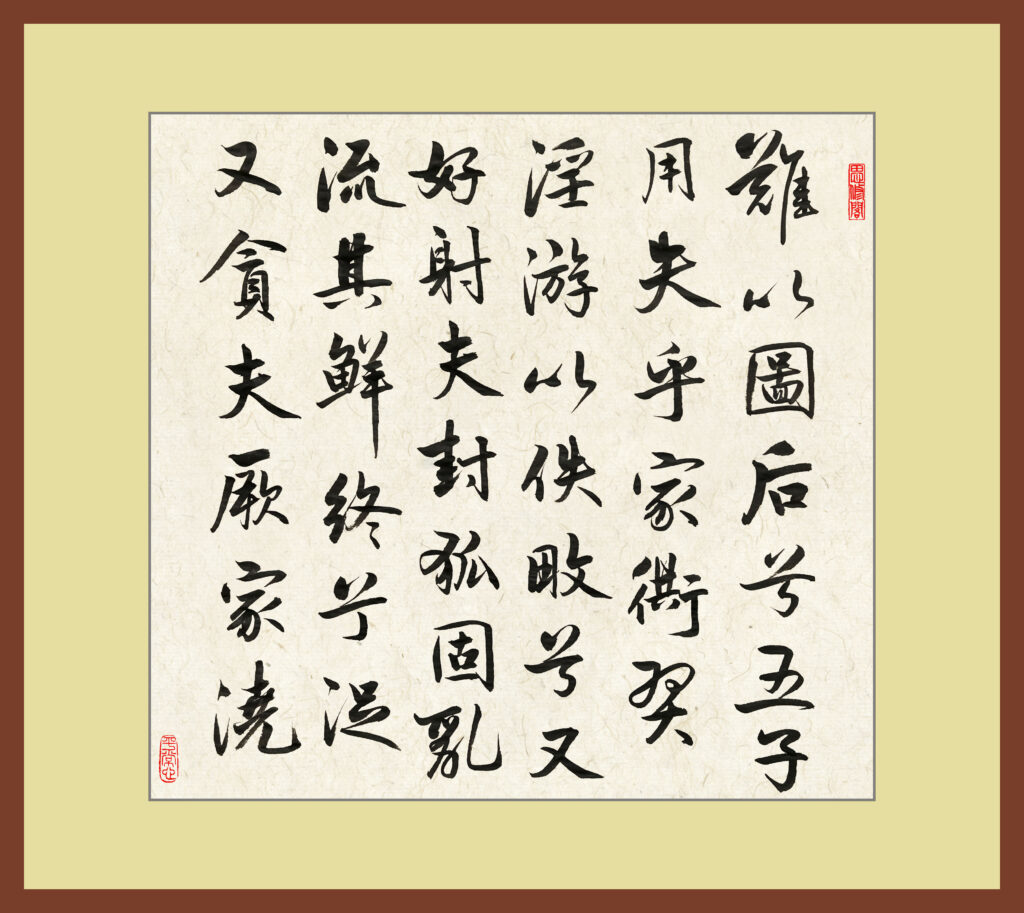 思修閣
難以圖后兮五子
用失乎家衖羿
淫游以佚畋兮又
好射夫封狐固亂
流其鮮終兮浞
又貪夫厥家澆
平常心